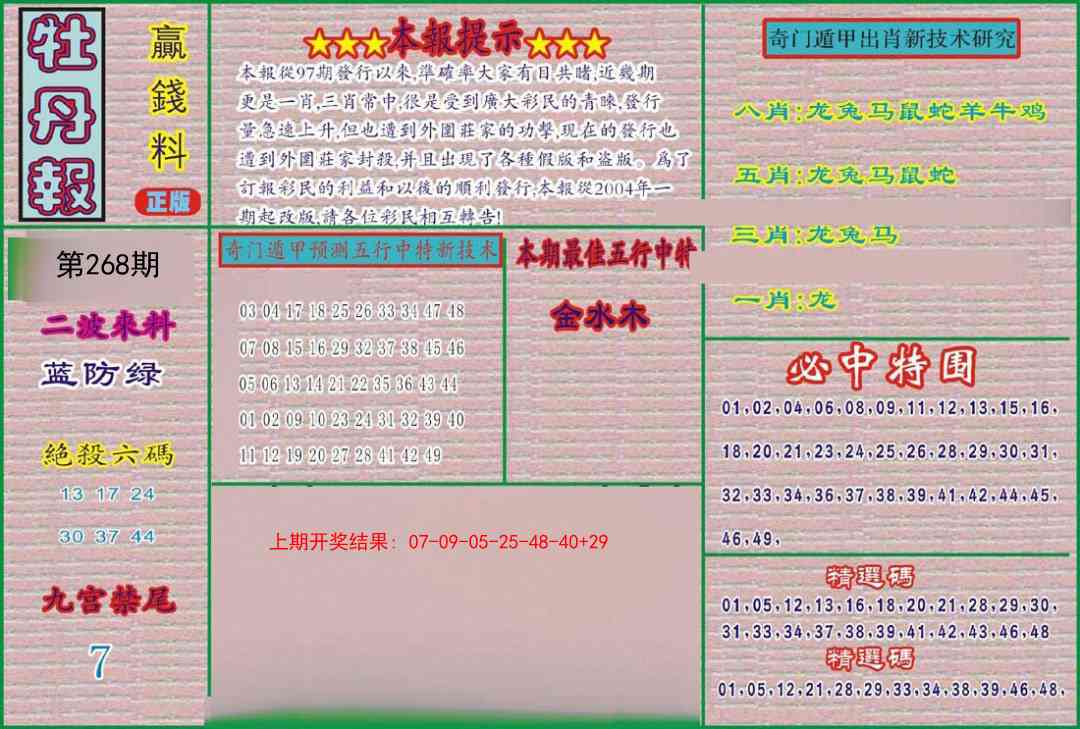 牡丹報
贏錢料
正版
★★★本報提示★★★
本報從97期發行以來,準確率大家有目共睹,近幾期
更是一肖,三肖常中,很是受到廣大彩民的青睞,發行
量急速上升,但也遭到外圍莊家的功擊,現在的發行也
遭到外圍莊家封殺,并且出現了各種假版和盜版。爲了
訂報彩民的利益和以後的順利發行,本報從2004年一
期起改版,請各位彩民相互轉告!
奇门遁甲出肖新技术研究
八肖:龙兔马鼠蛇羊牛鸡
五肖:龙兔马鼠蛇
三肖:龙兔马
一肖:龙
第268期
二波來料
蓝防绿
絕殺六碼
13 17 24
30 37 44
九宫禁尾
7
奇门遁甲预测五行中特新技术
03 04 17 18 25 26 33 34 47 48
07 08 15 16 29 32 37 38 45 46
05 06 13 14 21 22 35 36 43 44
01 02 09 10 23 24 31 32 39 40
11 12 19 20 27 28 41 42 49
本期最佳五行中特
金水木
上期开奖结果: 07-09-05-25-48-40+29
必中特围
01,02,04,06,08,09,11,12,13,15,16,
18,20,21,23,24,25,26,28,29,30,31,
32,33,34,36,37,38,39,41,42,44,45,
46,49,
精選碼
01,05,12,13,16,18,20,21,28,29,30,
31,33,34,37,38,39,41,42,43,46,48
精選碼
01,05,12,21,28,29,33,34,38,39,46,48,